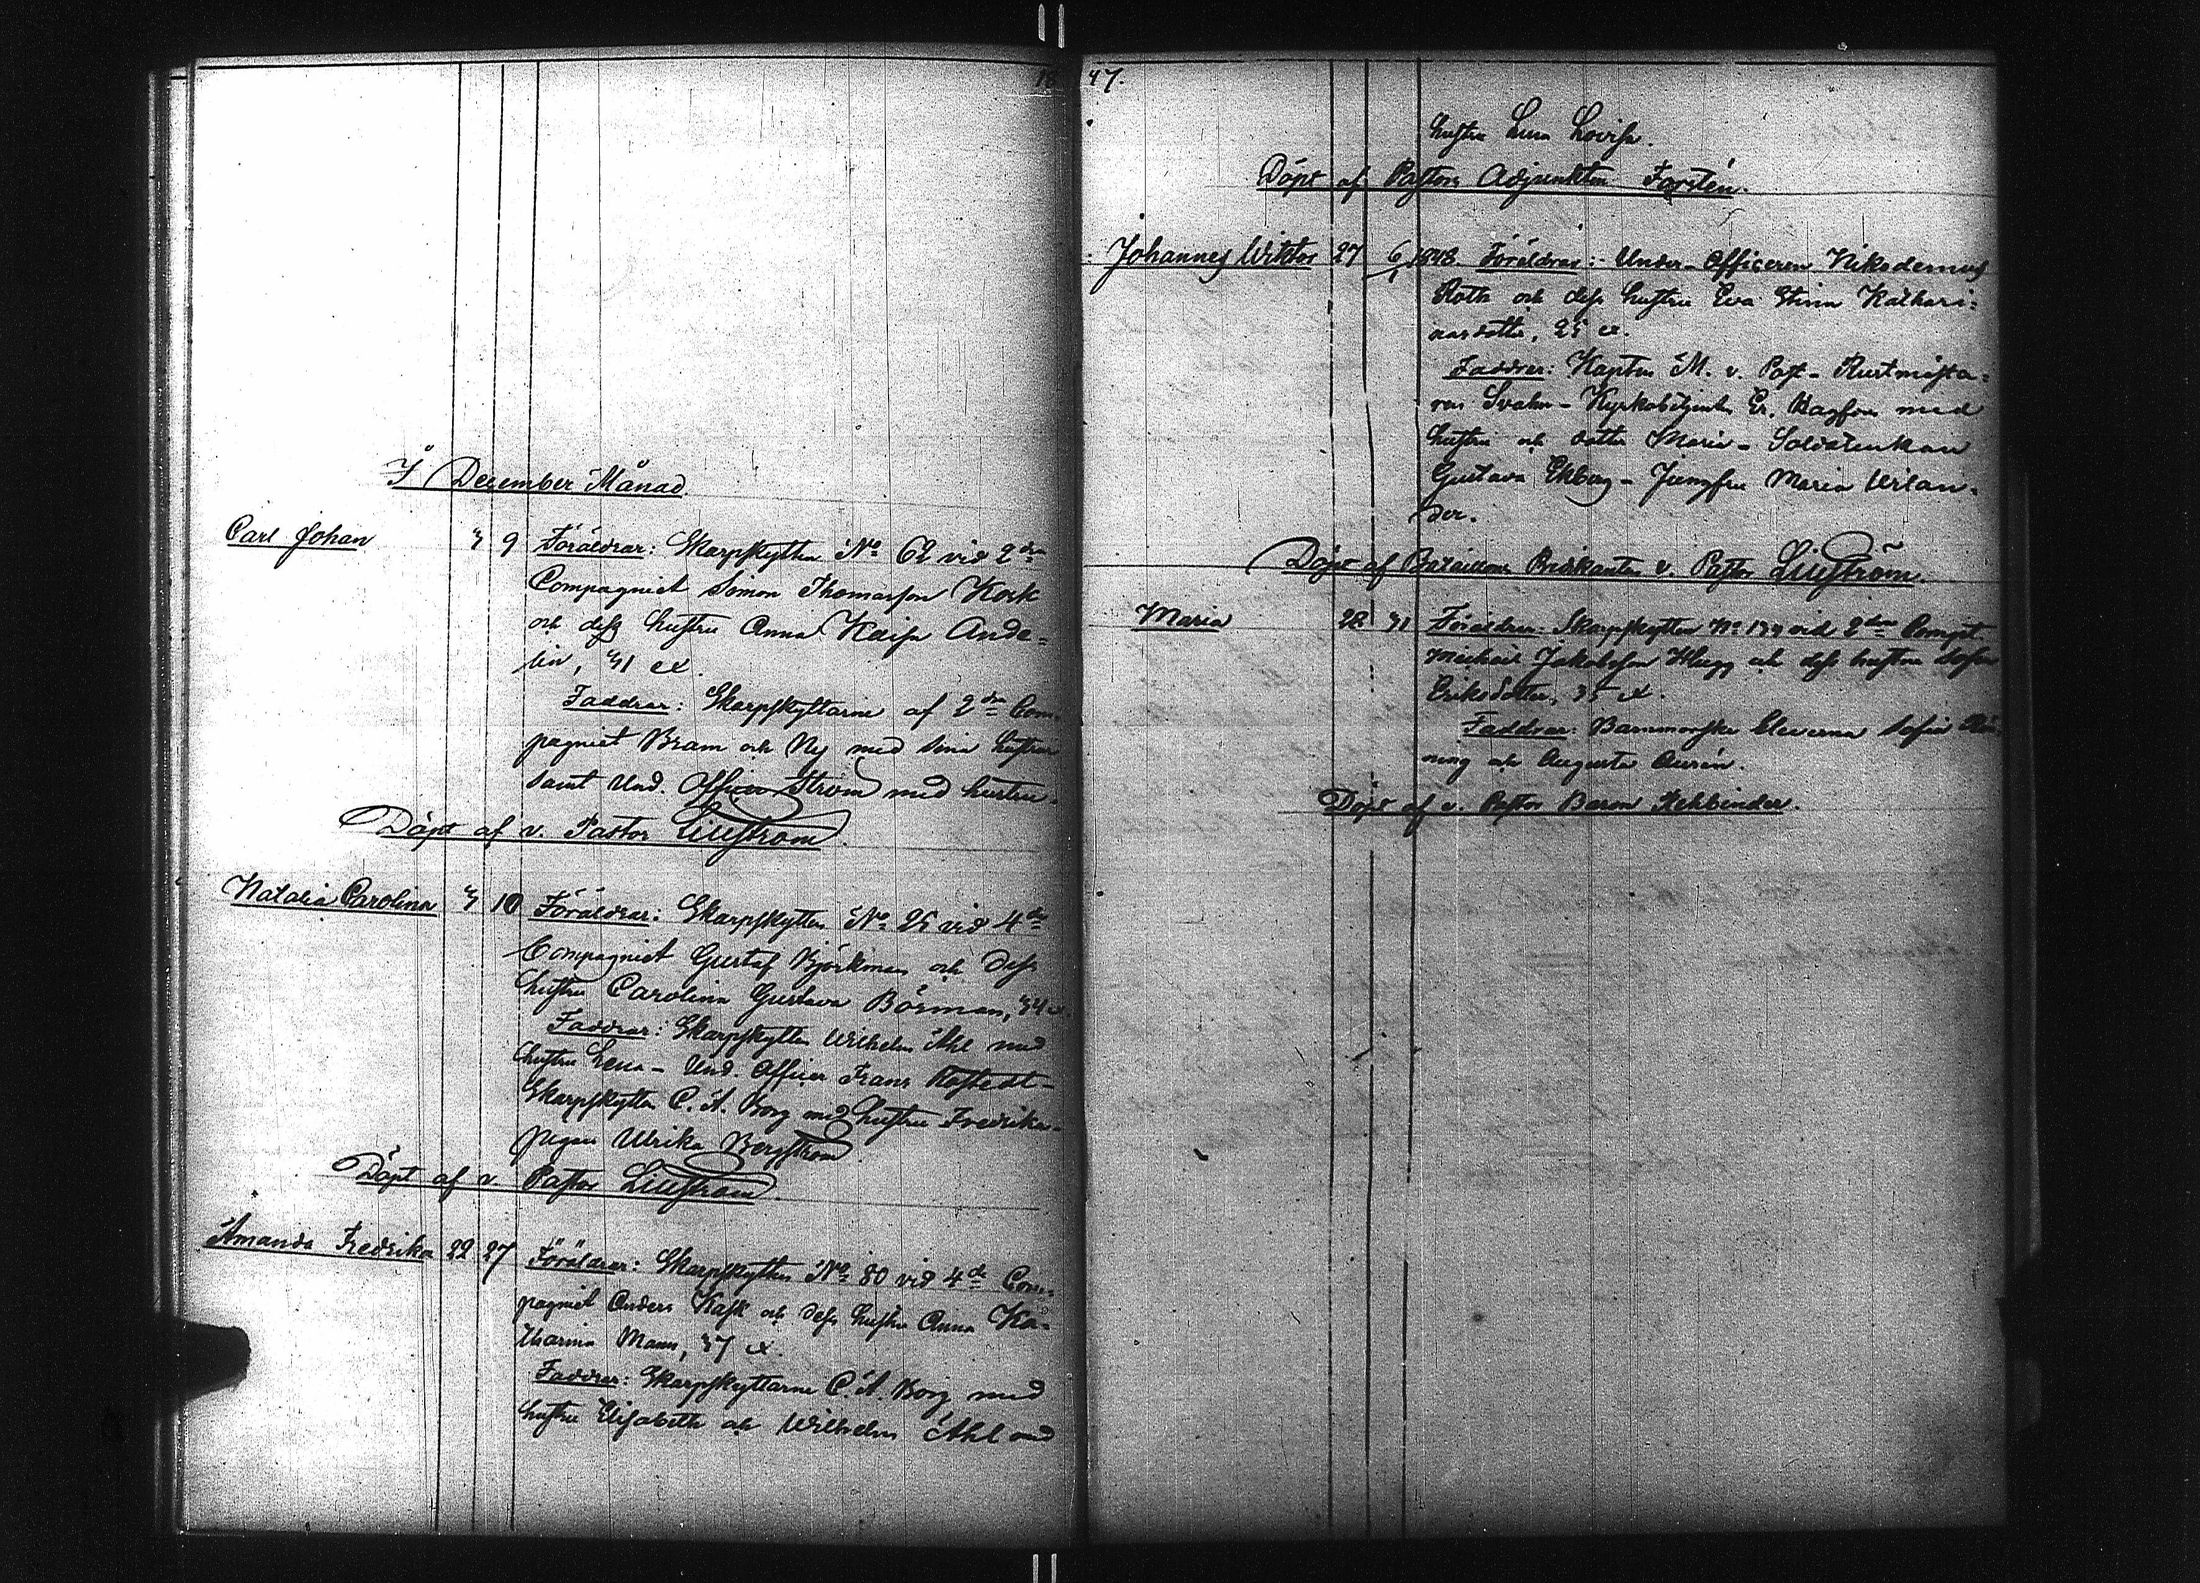 1847.
I December Månad.
Carl Johan 3 9 Föräldrar: Skarpskytten No 62 vid 2dra
Compagniet Simon Thomasson Kork
och dess hustru Anna Kaisa Ande-
lin, 31 år.
Faddrar: Skarpskyttarne af 2dra Com-
pagniet Bram och Ny med sina hustrur
samt Und. Officer Ström med hustru.
Döpt af v. Pastor Liljström.
Natalia Carolina 3 10 Föräldrar: Skarpskytten No 25 vid 4de
Compagniet Gustaf Björkman och dess
hustru Carolina Gustava Börman, 34 år.
Faddrar: Skarpskytten Wilhelm Ahl med
hustru Lena - Und. Officer Frans Rostedt -
Skarpskytten C. A. Borg med hustru Fredrika -
pigan Ulrika Bergström
Döpt af v. Pastor Liljström.
Amanda Fredrika 22 27 Föräldrar: Skarpskytten No 80 vid 4de Com-
pagniet Anders Kask och dess hustru Anna Ka-
tharina Mann, 37 år.
Faddrar: Skarpskyttarne C. A. Borg med
hustru Elisabeth och Wilhelm Ahl med
hustru Lena Lovisa.
Döpt af Pastors Adjunkten Forstén.
Johannes Wiktor 27 6/1 1848. Föräldrar: Under-Officeren Nikodemus
Roth och dess hustru Eva Stina Kathari-
nasdotter, 25 år.
Faddrar: Kapten M. v. Post - Rustmästa-
ren Svahn - Kyrkobetjenten Er. Hagfors med
hustru och dotter Maria - Soldatenkan
Gustava Ekberg - Jungfru Maria Wilan-
der.
Döpt af Bataillons Predikanten v. Pastor Liljström.
Maria 28 31 Föräldrar: Skarpskytten No 133 vid 2dra Compet
Michael Jakobsson Hugg och dess hustru Sofia
Eriksdotter, 35 år.
Faddrar: Barnmorske Eleverna Sofia
ning och Augusta Aurén.
Döpt af v. Pastor Baron Rehbinder.